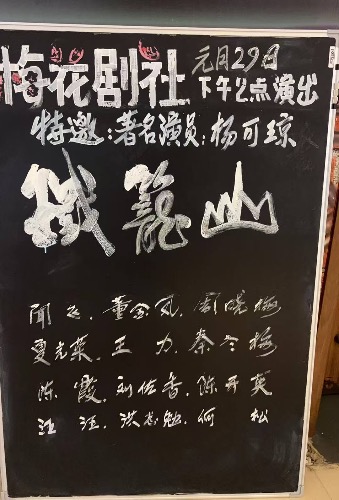 梅花剧社
元月29日
下午2点演出
特邀:著名演员:杨可琼
鐵籠山
闻飞、董金凤、劉晓梅
夏光荣、王力、秦冬梅
陈霞、刘佐香、陈开英
汪汪、洪志勉、何松